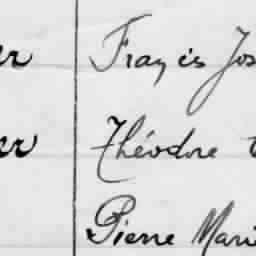 er Francis Jos
er Théodore
Pierre Mari